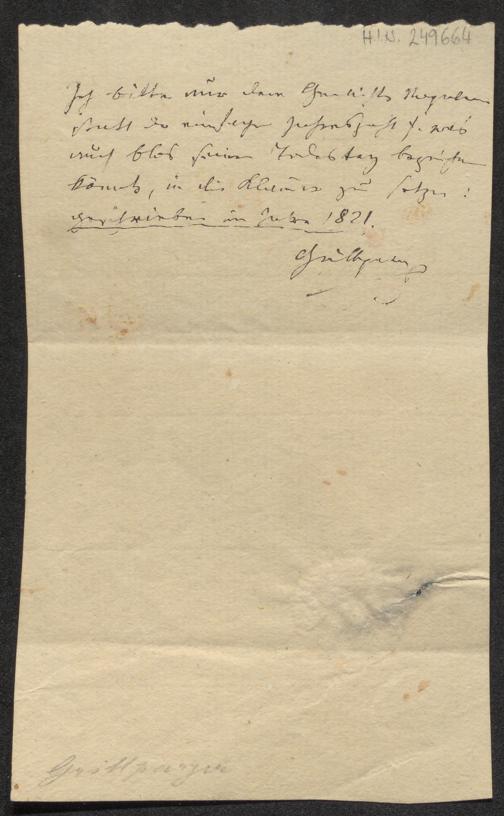 H.I.N. 249664
Ich bitte nur dem Gedichte Napoleon
statt der einfachen Jahreszahl, was
auch blos seinen Todestag bezeichnen
könnte, in die Klammer zu setzen:
geschrieben im Jahre 1821.
Grillparzer
Grillparzer